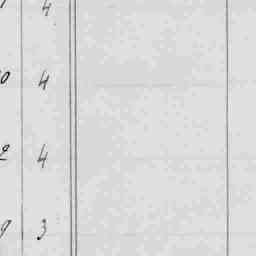 4
0 4
2 4
9 3